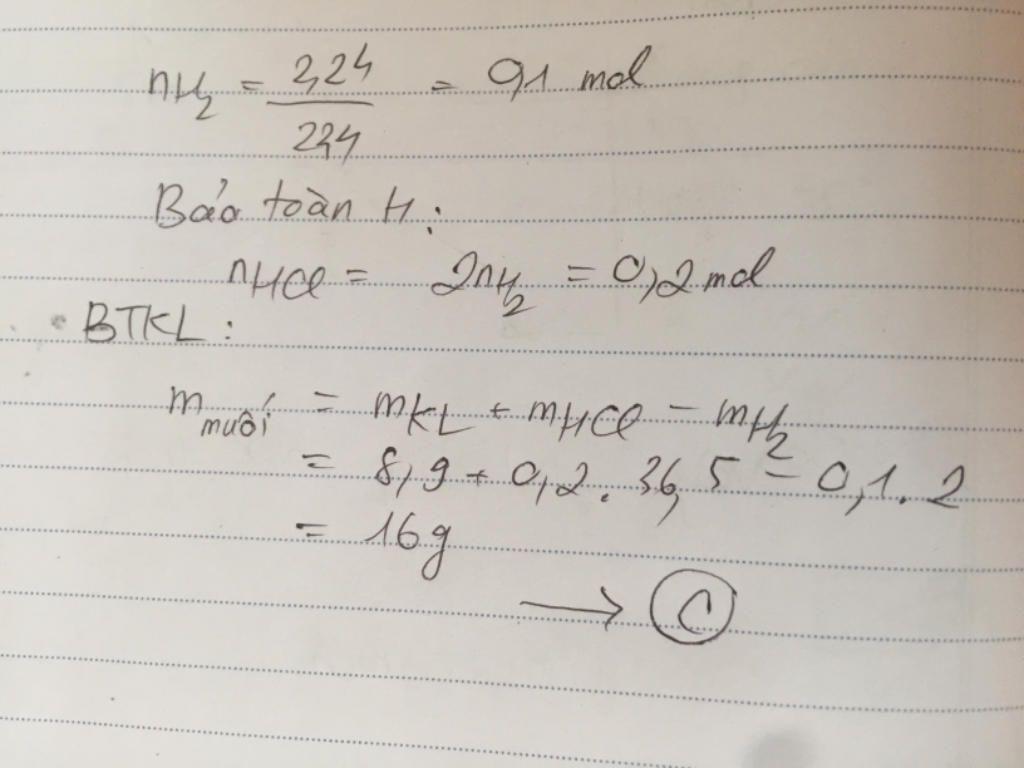 nH₂ = 2,24 / 22,4 = 0,1 mol
Bảo toàn H:
nHCl = 2nH₂ = 0,2 mol
BTKL:
m muối = mKL + mHCl - mH₂
= 8,9 + 0,2. 36,5 - 0,1. 2
= 16g
→ C